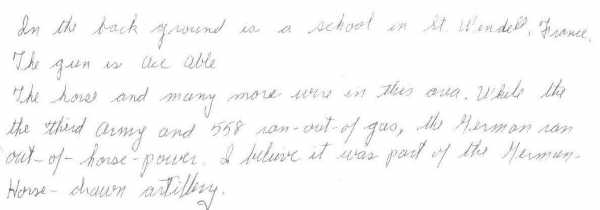 In the back ground is a school in St. Wendell, France.
The gun is Ace Able
The horse and many more were in this area. While the
the third Army and 558 ran-out-of gas, the German ran
out-of-horse-power. I believe it was part of the German-
Horse-drawn artillery.